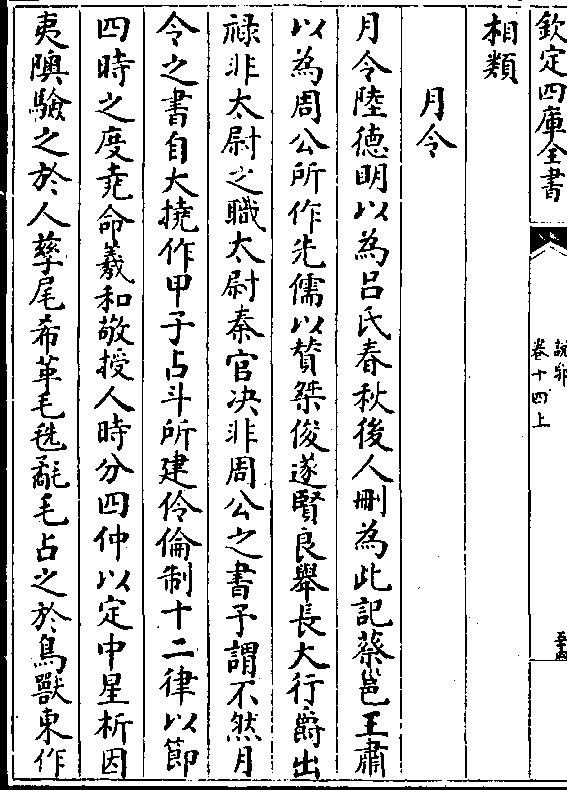 欽定四庫全書
說郛
卷十四上
相類
月令
月令陸德明以為呂氏春秋後人刪為此記蔡邕王肅
以為周公所作先儒以賛桀俊遂賢良舉長大行爵出
祿非太尉之職太尉秦官决非周公之書予謂不然月
令之書自大撓作甲子占斗所建伶倫制十二律以節
四時之度堯命羲和敬授人時分四仲以定中星析因
夷隩驗之於人孳尾希革毛毨氄毛占之於鳥獸東作